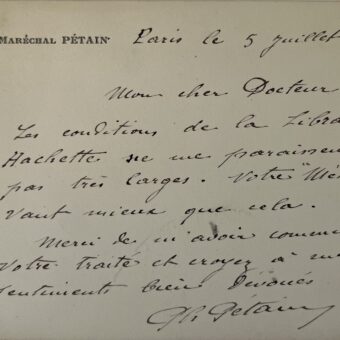 MARÉCHAL PÉTAIN Paris le 5 juillet
Mon cher Docteur
Les conditions de la Libra
Hachette ne me paraissen
pas très larges. Votre "Mé
vaut mieux que cela.
Merci de m'avoir commu
votre traité et croyez à me
sentiments bien dévoués
Ph. Pétain